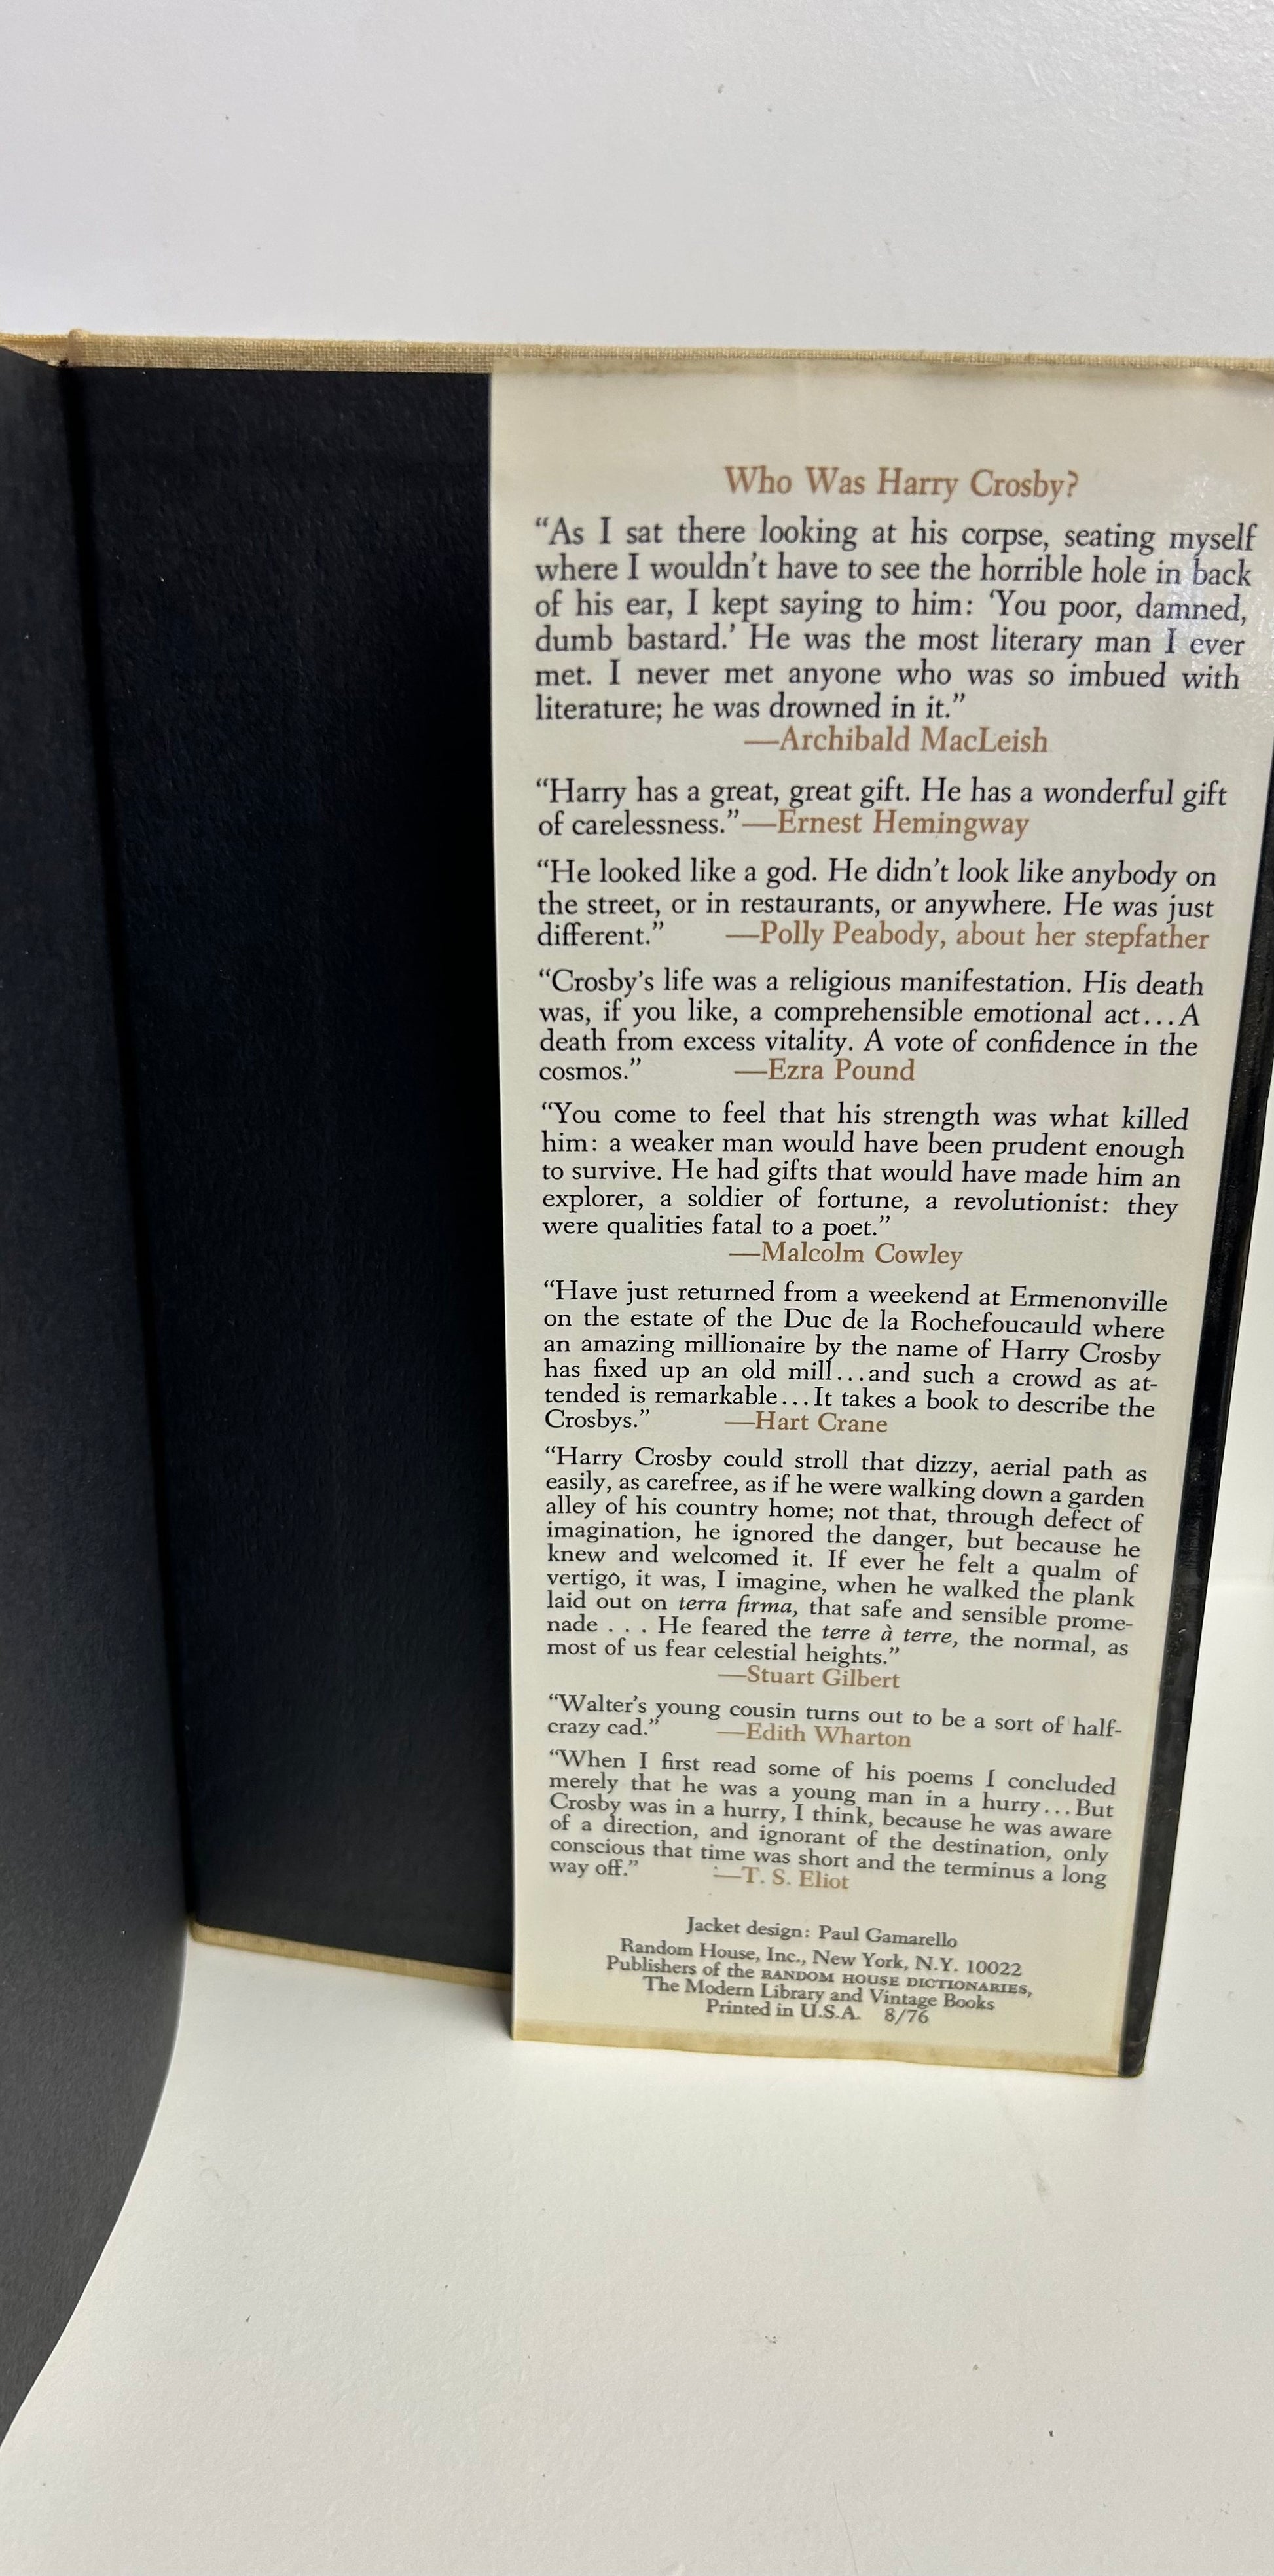 Who Was Harry Crosby?
“As I sat there looking at his corpse, seating myself
where I wouldn’t have to see the horrible hole in back
of his ear, I kept saying to him: ‘You poor, damned,
dumb bastard.’ He was the most literary man I ever
met. I never met anyone who was so imbued with
literature; he was drowned in it.”
—Archibald MacLeish
“Harry has a great, great gift. He has a wonderful gift
of carelessness.”—Ernest Hemingway
“He looked like a god. He didn’t look like anybody on
the street, or in restaurants, or anywhere. He was just
different.” —Polly Peabody, about her stepfather
“Crosby’s life was a religious manifestation. His death
was, if you like, a comprehensible emotional act...A
death from excess vitality. A vote of confidence in the
cosmos.” —Ezra Pound
“You come to feel that his strength was what killed
him: a weaker man would have been prudent enough
to survive. He had gifts that would have made him an
explorer, a soldier of fortune, a revolutionist: they
were qualities fatal to a poet.”
—Malcolm Cowley
“Have just returned from a weekend at Ermenonville
on the estate of the Duc de la Rochefoucauld where
an amazing millionaire by the name of Harry Crosby
has fixed up an old mill...and such a crowd as at-
tended is remarkable...It takes a book to describe the
Crosbys.” —Hart Crane
“Harry Crosby could stroll that dizzy, aerial path as
easily, as carefree, as if he were walking down a garden
alley of his country home; not that, through defect of
imagination, he ignored the danger, but because he
knew and welcomed it. If ever he felt a qualm of
vertigo, it was, I imagine, when he walked the plank
laid out on terra firma, that safe and sensible prome-
nade . . . He feared the terre à terre, the normal, as
most of us fear celestial heights.”
—Stuart Gilbert
“Walter’s young cousin turns out to be a sort of half-
crazy cad.” —Edith Wharton
“When I first read some of his poems I concluded
merely that he was a young man in a hurry...But
Crosby was in a hurry, I think, because he was aware
of a direction, and ignorant of the destination, only
conscious that time was short and the terminus a long
way off.” —T. S. Eliot
Jacket design: Paul Gamarello
Random House, Inc., New York, N.Y. 10022
Publishers of the RANDOM HOUSE DICTIONARIES,
The Modern Library and Vintage Books
Printed in U.S.A. 8/76